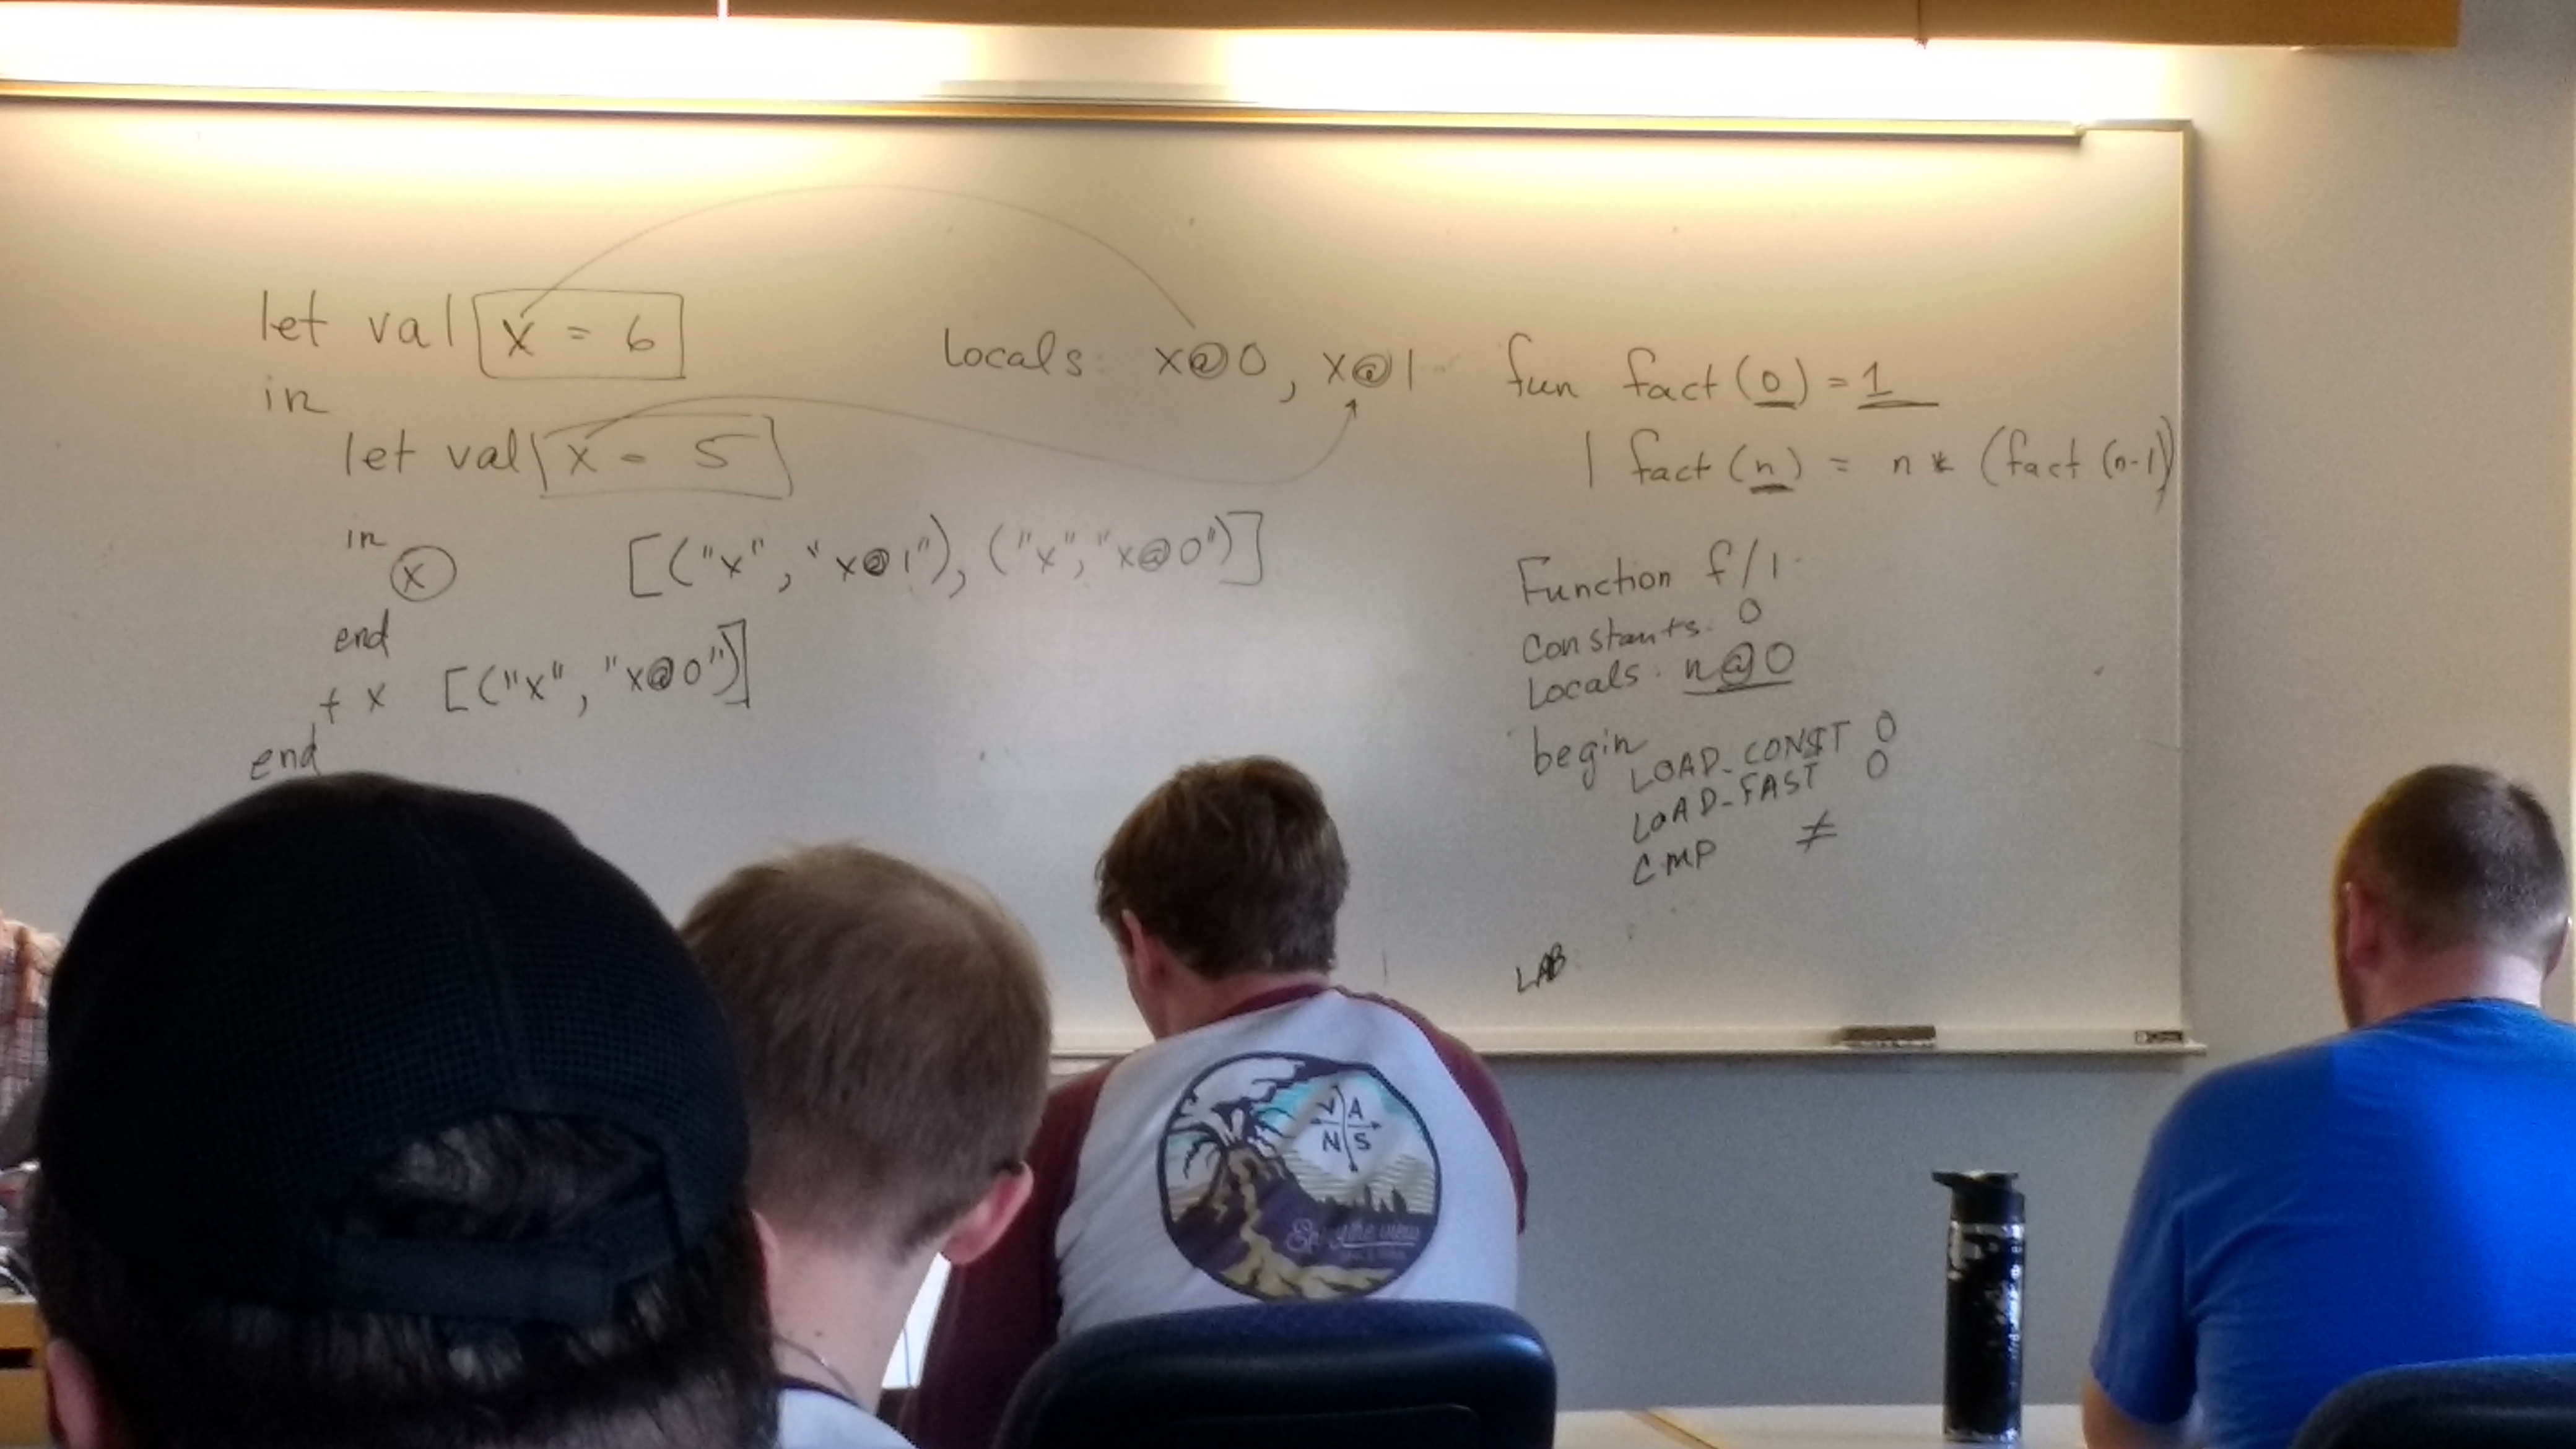 let val x = 6
in
let val x = 5
in
x
end
+ x
end
Locals: x@0, x@1
[("x", "x@1"), ("x", "x@0")]
[("x", "x@0")]
fun fact (0) = 1
| fact (n) = n * (fact (n-1))
Function f/1
Constants: 0
Locals: n@0
begin
LOAD_CONST 0
LOAD_FAST 0
CMP ≠
LAB
V A
N S